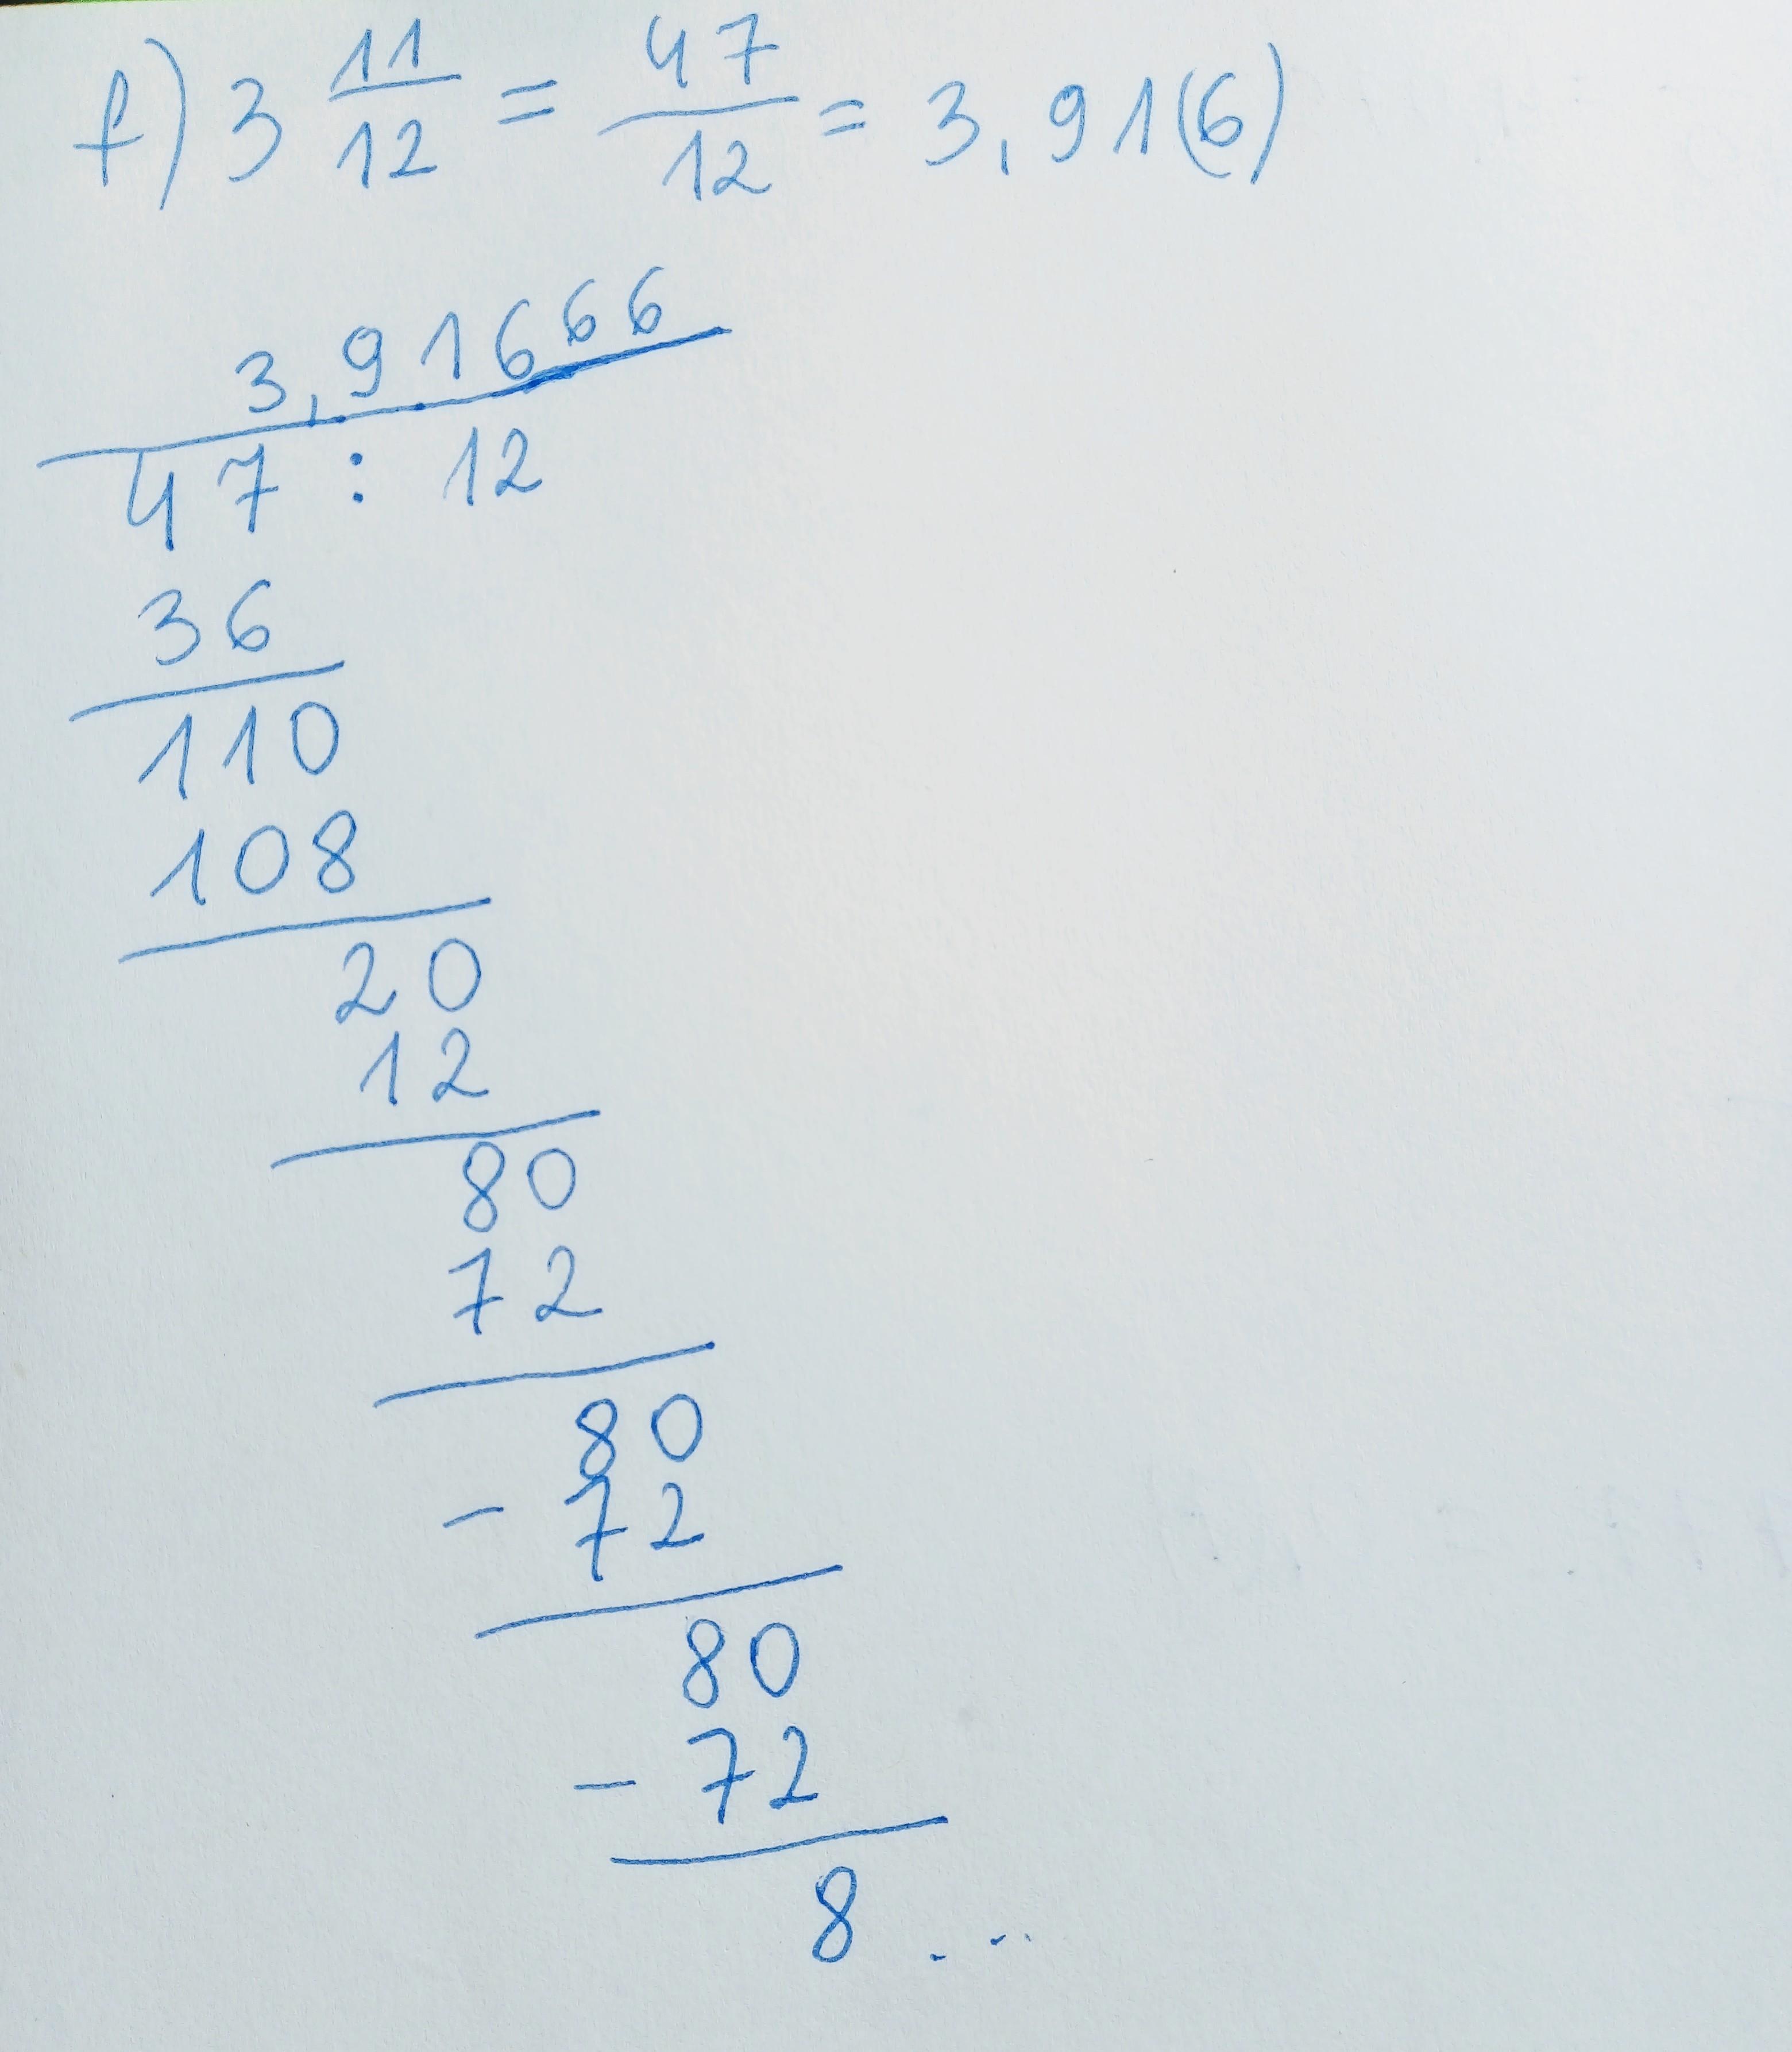 f) 3 11/12 = 47/12 = 3,91(6)
3,91666
47 : 12
36
110
108
20
12
80
72
80
- 72
80
- 72
8 ...